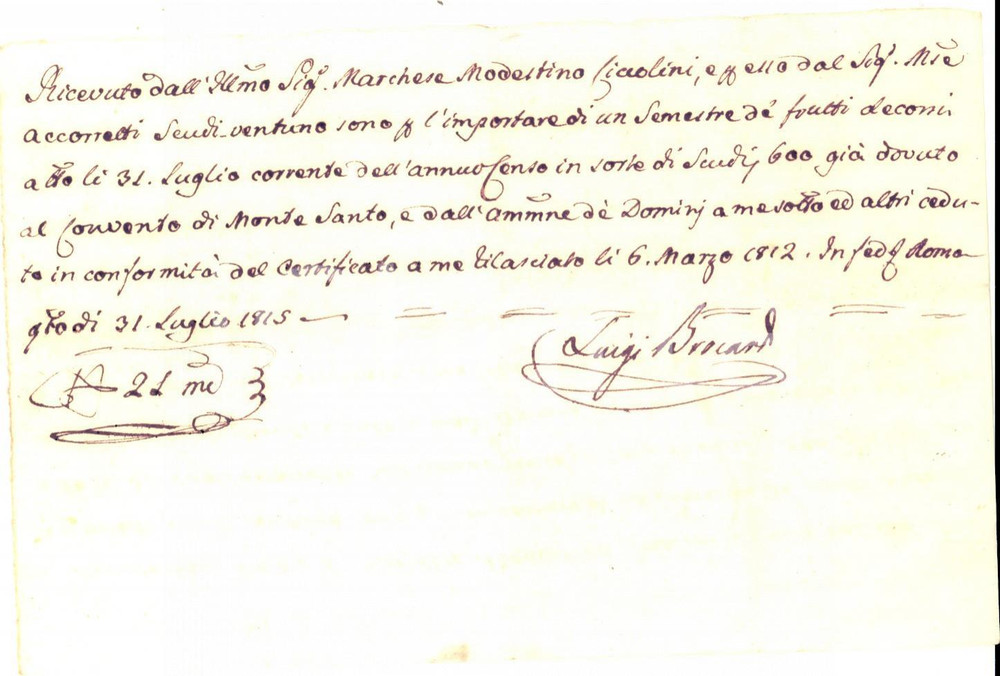 Ricevuto dall'Illmo Sigr. Marchese Modestino Ciccolini, e p esso dal Sigr. Mse
Accorretti Scudi ventuno sono p l'importare di un Semestre de' frutti decorsi
a tto li 31. Luglio corrente dell'annuo Censo in sorte di Scudi 600 già dovuto
al Convento di Monte Santo, e dall'Ammne dè Dominj a me sotto ed altri cedu-
to in conformità del Certificato a me rilasciato li 6. Marzo 1812. In fede Roma
qto dì 31. Luglio 1815
21 mta
Luigi Brocard